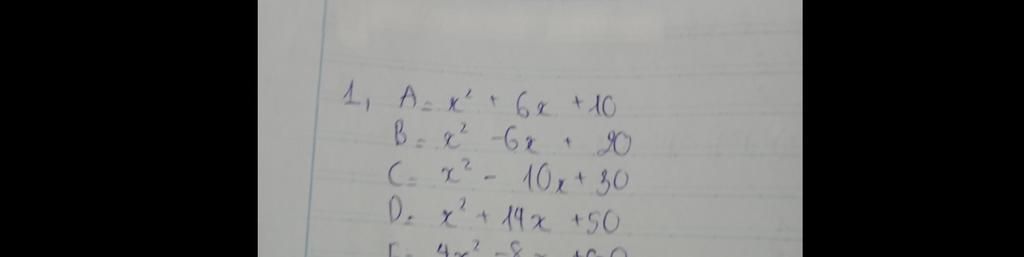 1, A = x² + 6x + 10
B = x² - 6x + 20
C = x² - 10x + 30
D = x² + 14x + 50
4x² - 8